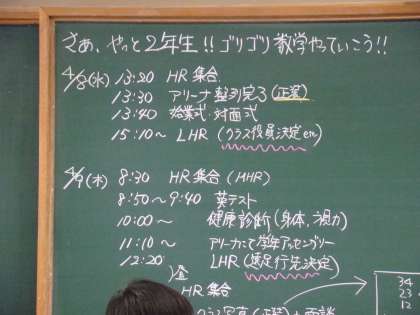 さあ、やっと2年生!! ゴリゴリ数学やっていこう!!
4/8(水) 13:20 HR集合
13:30 アリーナ整列完了(正装)
13:40 始業式・対面式
15:10〜 LHR (クラス役員決定etc)
4/9(木) 8:30 HR集合 (HHR)
8:50〜9:40 英テスト
10:00〜 健康診断(身体、視力)
11:10〜 アリーナにて学年アッセンブリー
12:20 LHR (遠足行先決定)
HR集合
クラス写真(正装)+面談
34
23
12